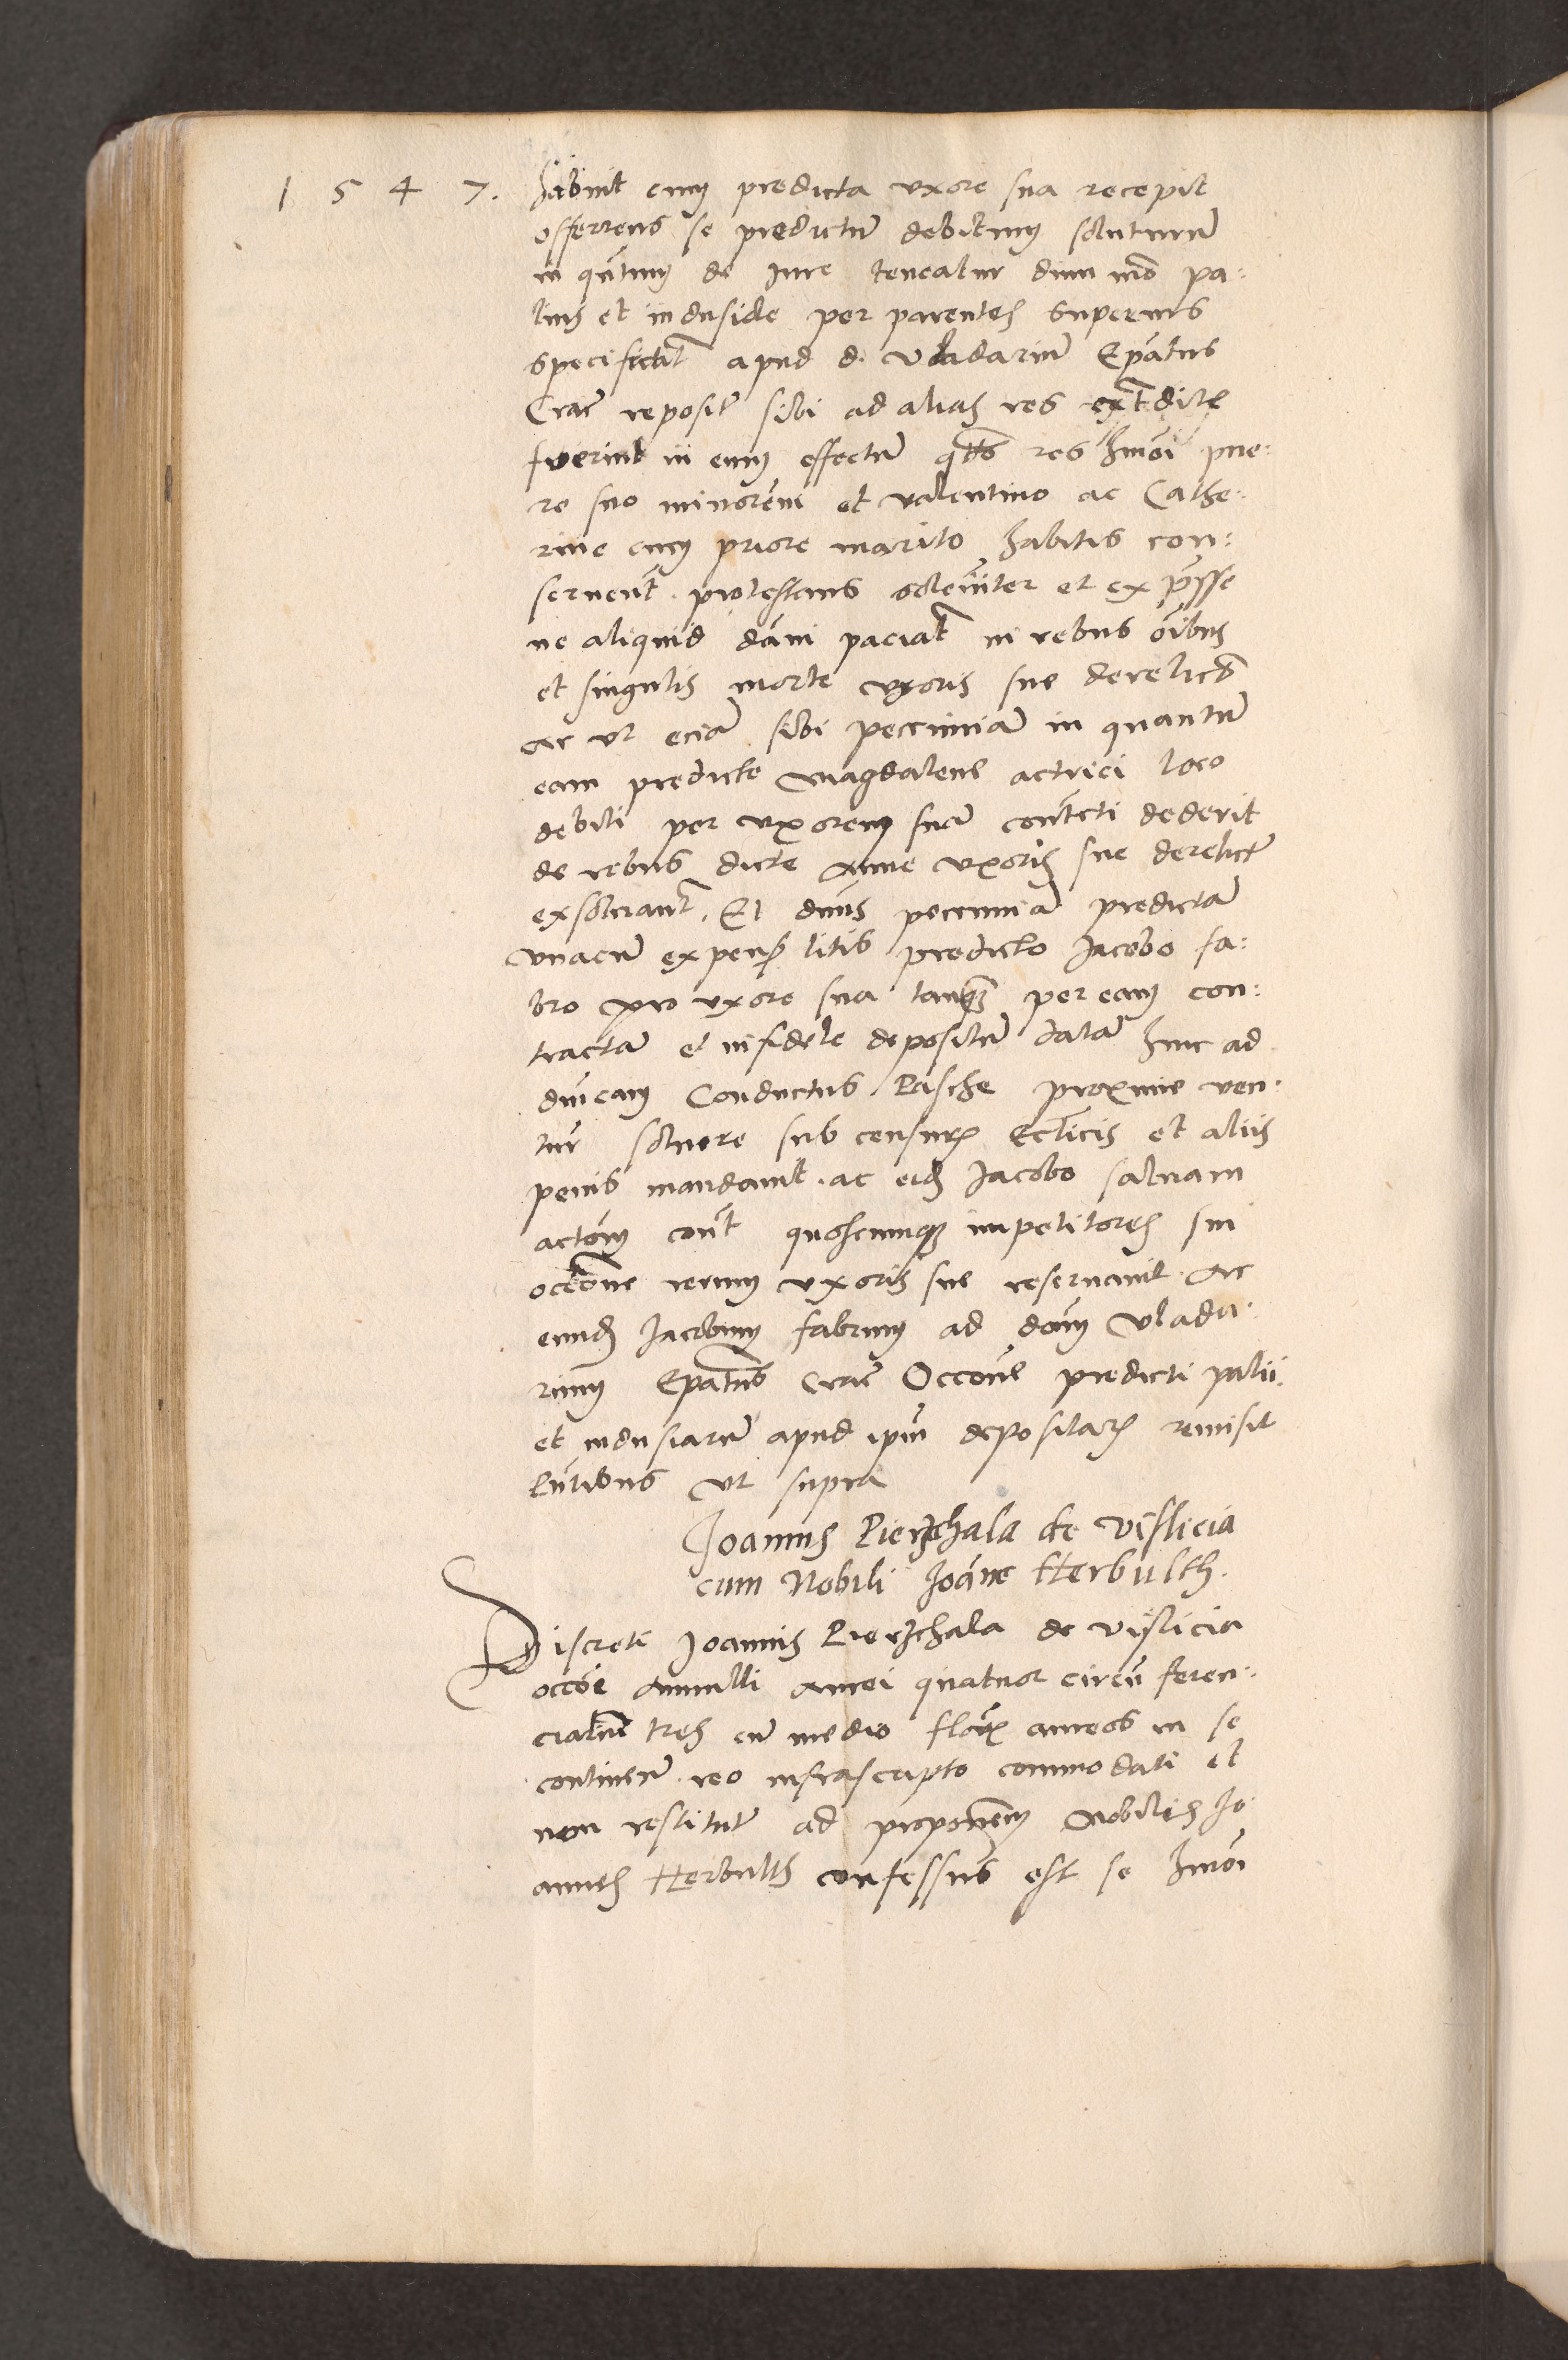 1 5 4 7.
habuit cum predicta uxore sua recepit
offerrens se predictum debitum soluturum
in quantum de iure teneatur dum modo pa:
lius et indusiae per parentes superius
specificat apud d. vladarium Epatus
Crac reposit sibi ad alias res extradite
fuerint in eum effectum quatenus res hmoi pue:
ro suo minoreni et valentino ac Cathe:
rine cum priore marito habitis con:
seruent. protestans solenniter et expresse
ne aliquid damni paciatur in rebus omibus
et singulis morte uxoris sue derelict
ac ut eciam sibi peccuniam in quantum
eam predicte Magdalene actrici loco
debiti per uxorem suam contracti dederit
de rebus dicte Anne uxoris sue derelict
exsoluant. Et dnus peccuniam predictam
vnacum expens litis predicto Jacobo fa:
bro pro uxore sua tanquam per eam con:
tractam et infidele depositum datam hinc ad
dnicam Conductus Pasche proxime ven:
tur soluere sub censuris Ecclicis et aliis
penis mandauit. ac eidem Jacobo saluam
actionem contra quoscunque impetitores sui
occasione rerum uxoris sue reseruauit. Ac
eundem Jacobum fabrum ad dnum vlada:
rium Epatus Crac Occone predicti palii
et indusiarum apud ipsum depositarum remisit
Pntibus ut supra
Joannis Pierzchala de vislicia
cum Nobili Joanne Herbulth.
Discreti Joannis Pierzchala de vislicia
occone Annulli aurei quatuor circumferen:
cialiter tres cum medio floren aureos in se
continen. reo infrascripto commodati et
non restitut ad proponem Nobilis Jo
annes Herbulth confessus est se hmoi